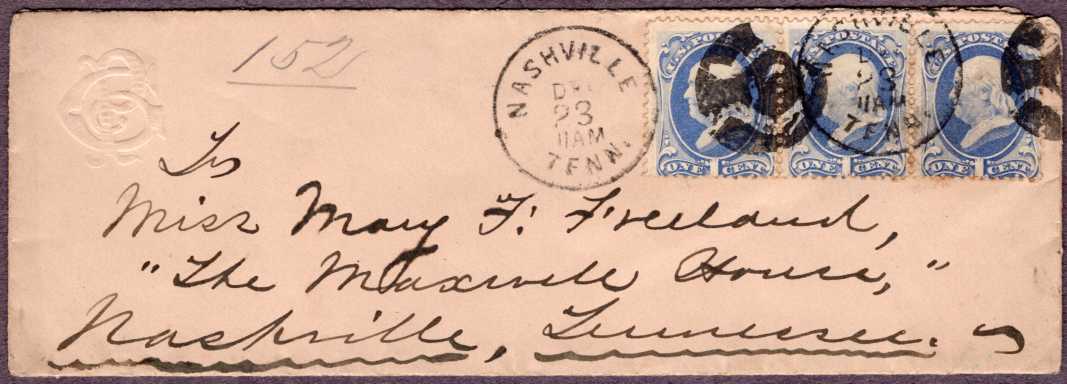 152
NASHVILLE
DEC
23
11AM
TENN.
U.S. POSTAGE
ONE 1 CENT
POSTAGE
ONE 1 CENT
ONE 1 CENT
NASHVILLE
23
11AM
TENN.
To
Miss Mary F. Freeland,
"The Maxwell House,"
Nashville, Tennessee.